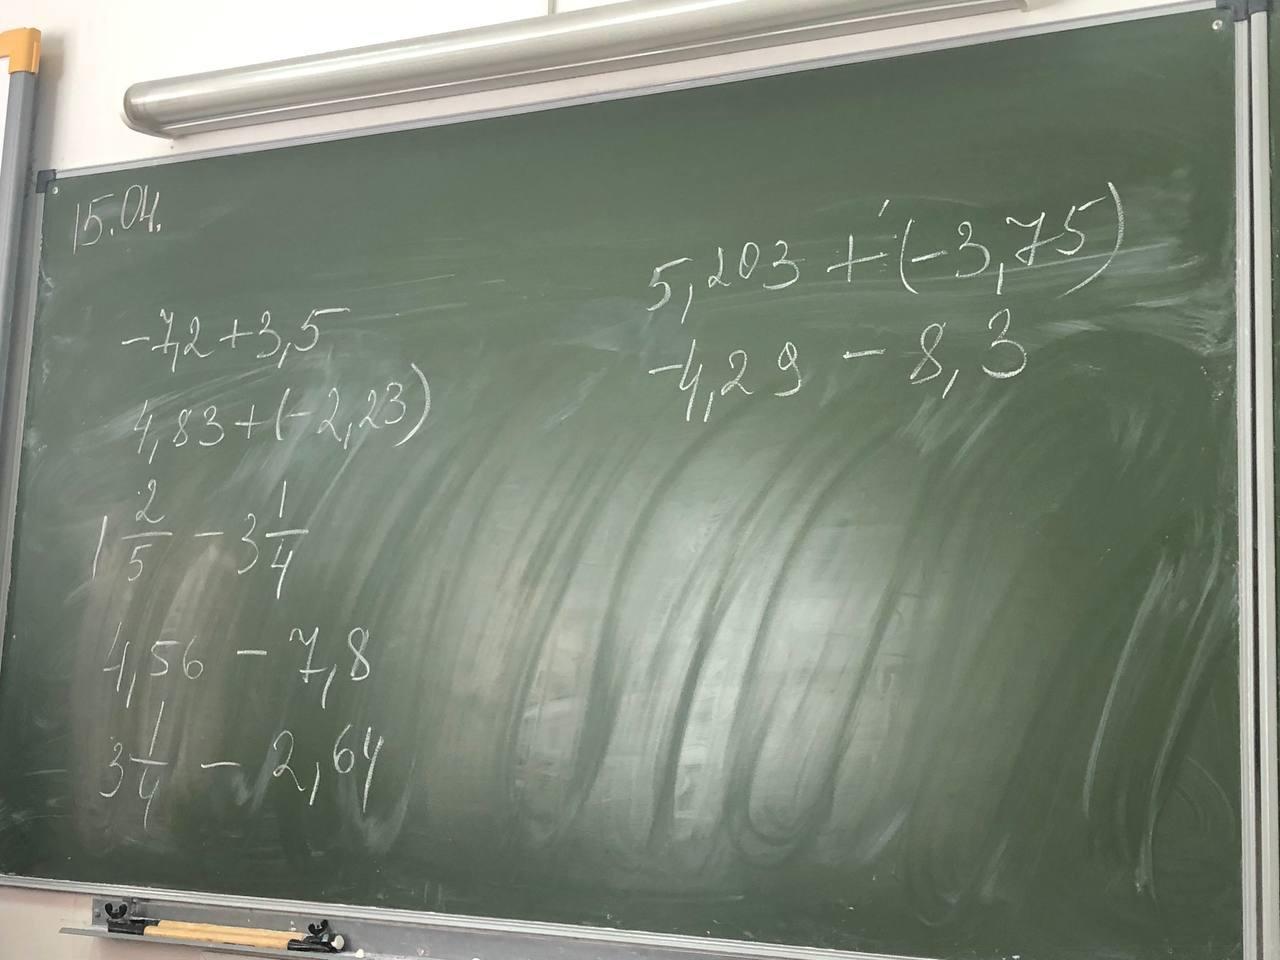 15.04.
-7,2+3,5
4,83+(-2,23)
1 2/5 - 3 1/4
4,56 - 7,8
3 1/4 - 2,64
5,203 + (-3,75)
-4,29 - 8,3